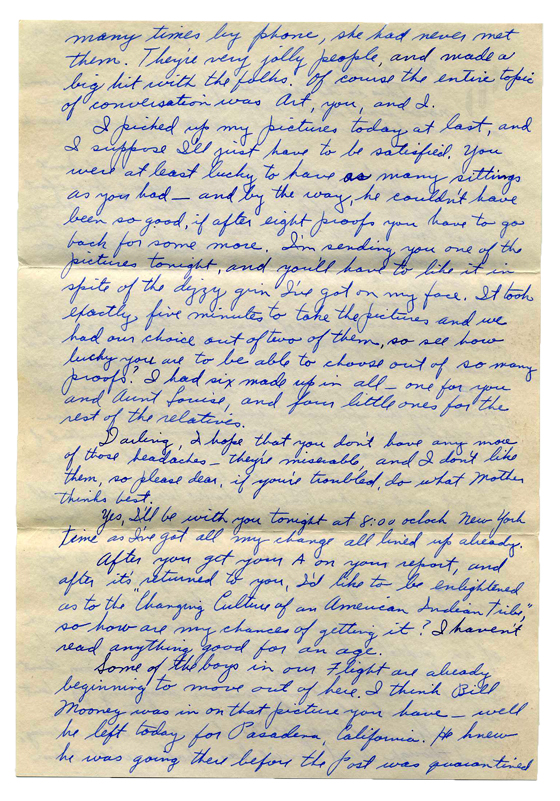 many times by phone, she had never met
them. They're very jolly people, and made a
big hit with the folks. Of course the entire topic
of conversation was Art, you, and I.
I picked up my pictures today at last, and
I suppose I'll just have to be satisfied. You
were at least lucky to have as many sittings
as you had — and by the way, he couldn't have
been so good, if after eight proofs you have to go
back for some more. I'm sending you one of the
pictures tonight, and you'll have to like it in
spite of the dizzy grin I've got on my face. It took
exactly five minutes to take the pictures and we
had our choice out of two of them, so see how
lucky you are to be able to choose out of so many
proofs? I had six made up in all — one for you
and Aunt Louise, and four little ones for the
rest of the relatives.
Darling, I hope that you don't have any more
of those headaches — they're miserable, and I don't like
them, so please dear, if you're troubled, do what Mother
thinks best.
Yes, I'll be with you tonight at 8:00 oclock New York
time as I've got all my change all lined up already.
After you get your A on your report, and
after it's returned to you, I'd like to be enlightened
as to the "Changing Culture of an American Indian Tribe",
so how are my chances of getting it? I haven't
read anything good for an age.
Some of the boys in our Flight are already
beginning to move out of here. I think Bill
Mooney was in on that picture you have — well
he left today for Pasadena, California. He knew
he was going there before the Post was quarantined